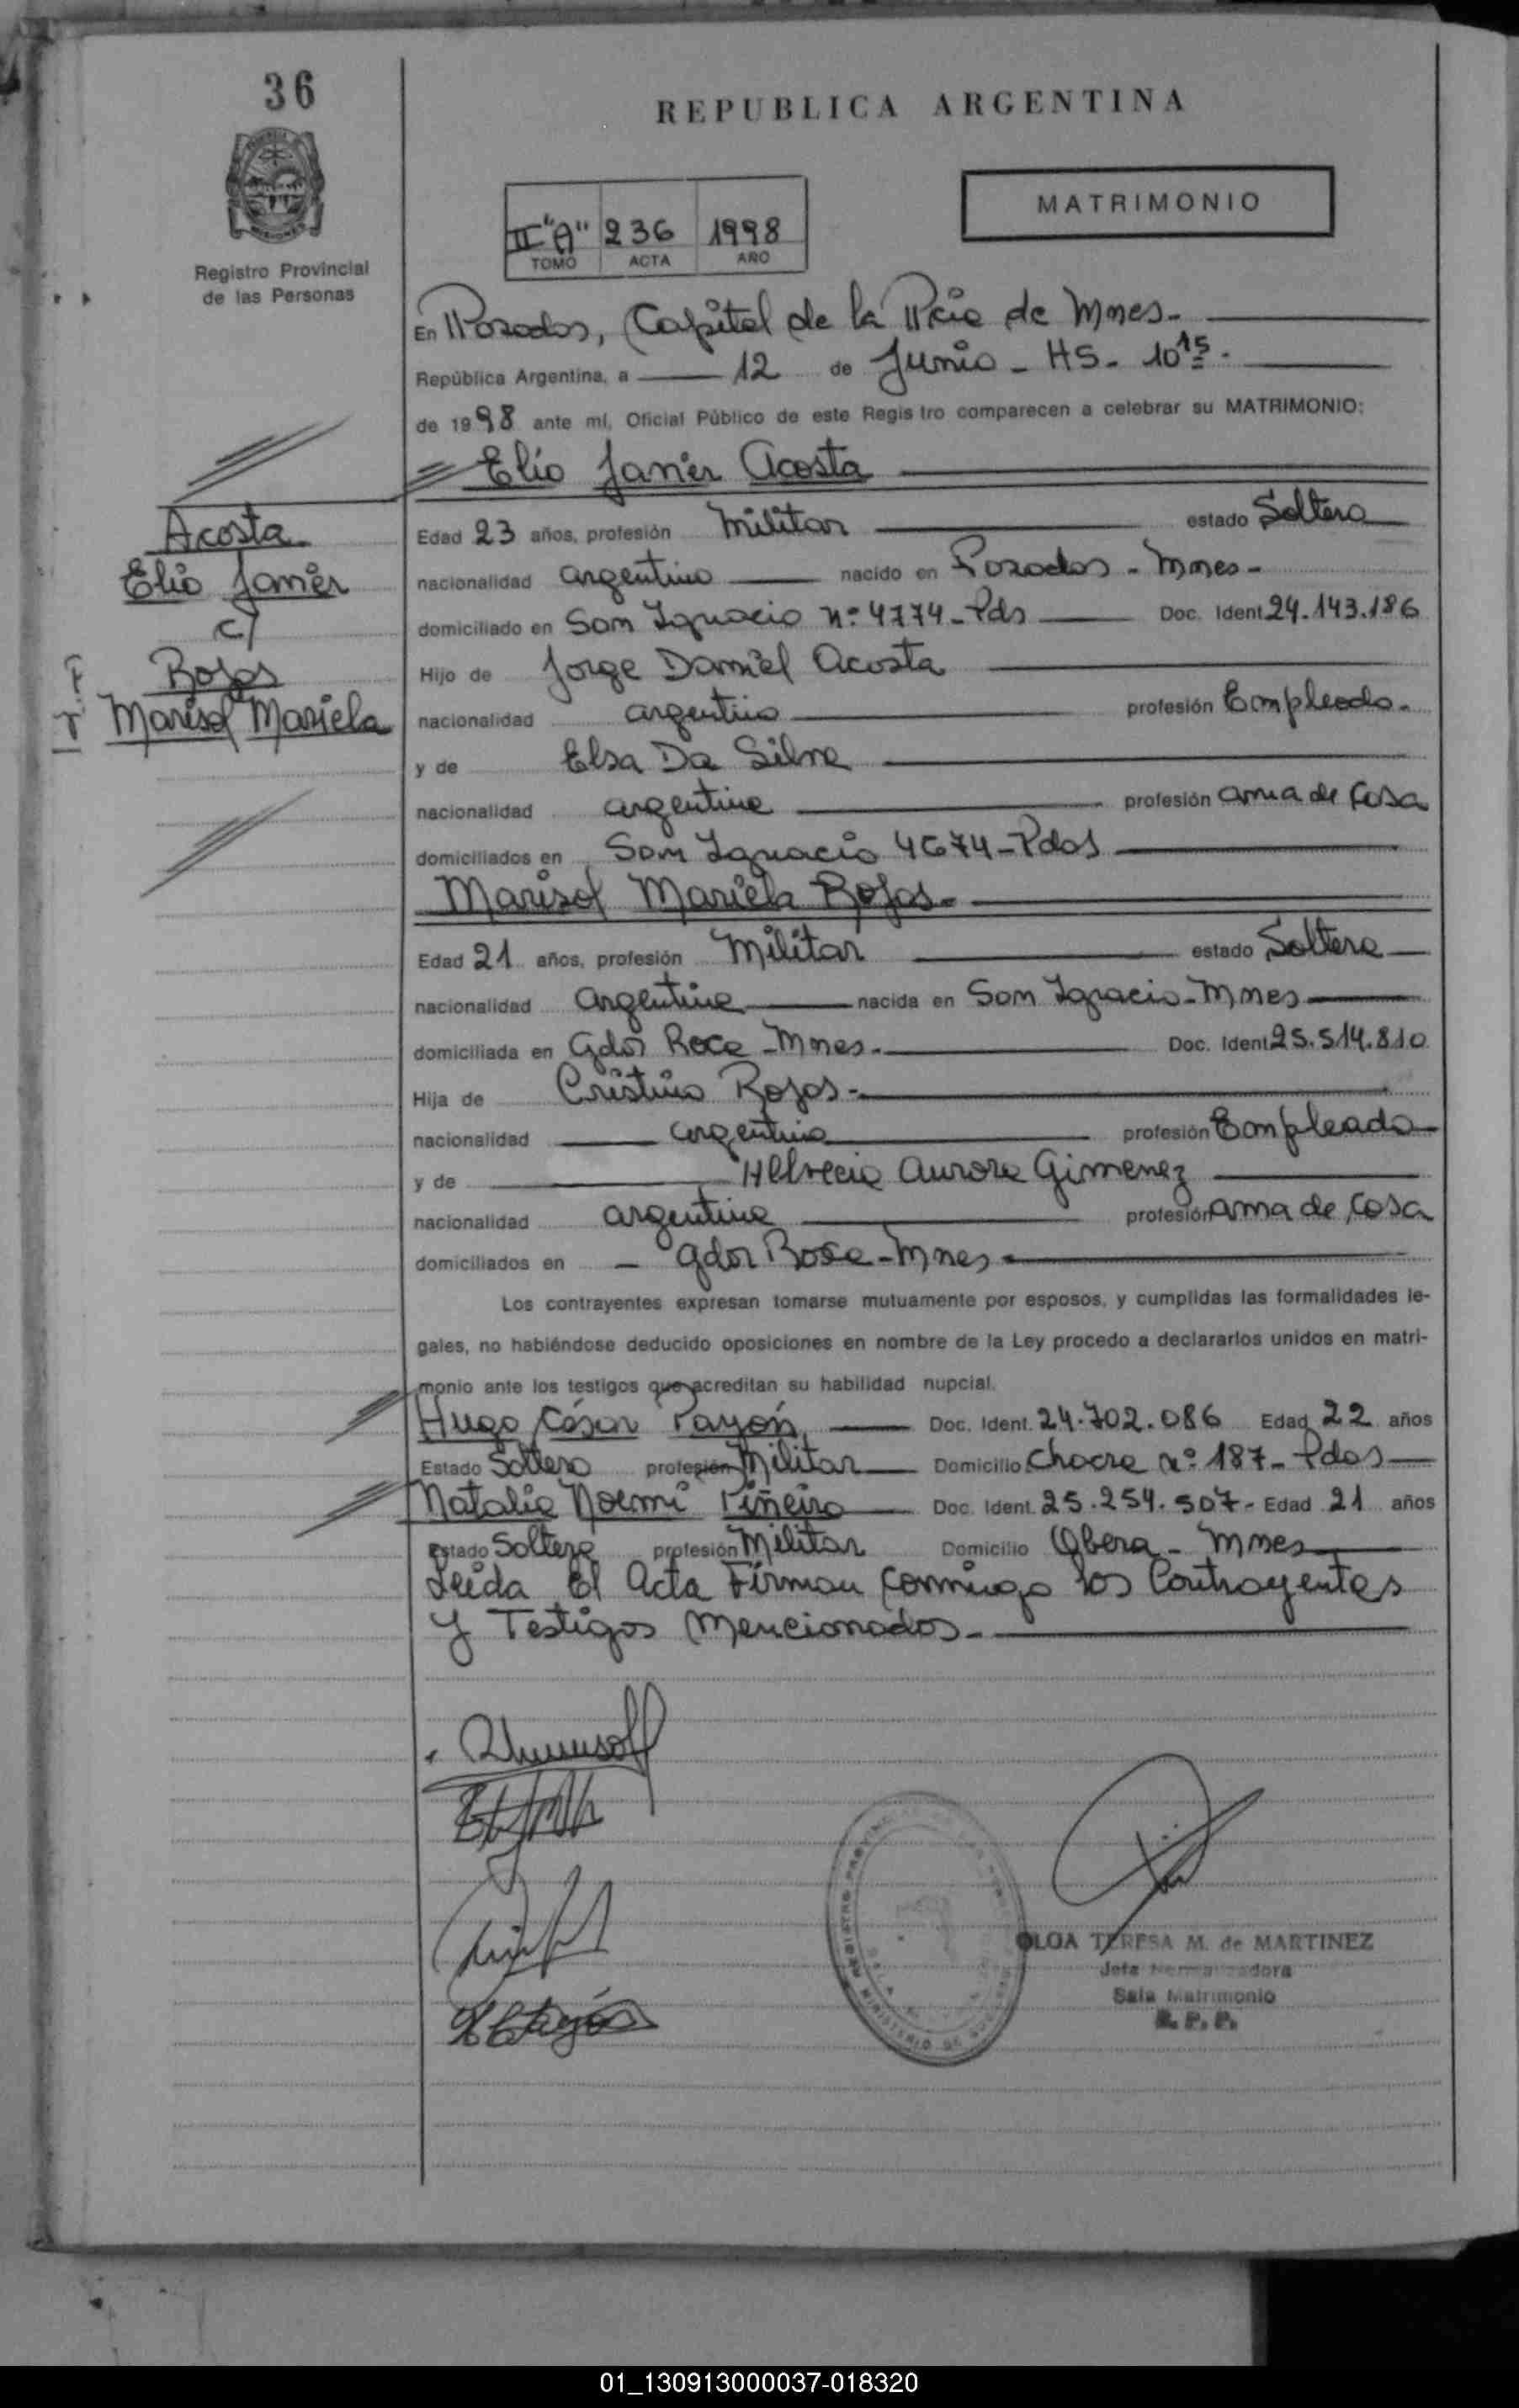 36
REPUBLICA ARGENTINA
MATRIMONIO
II "A" 236 1998
TOMO ACTA AÑO
Registro Provincial
de las Personas
En Posadas, Capital de la Pcia de Mnes.
República Argentina, a 12 de Junio - HS. 10 15.
de 1998 ante mí, Oficial Público de este Registro comparecen a celebrar su MATRIMONIO:
Elio Javier Acosta
Acosta
Elio Javier
c/
Rojas
Marisol Mariela
Edad 23 años, profesión Militar estado Soltero
nacionalidad argentino nacido en Posadas - Mnes -
domiciliado en San Ignacio nº 4774 - Pds Doc. Ident 24.143.186
Hijo de Jorge Daniel Acosta
nacionalidad argentino profesión Empleado.
y de Elsa Da Silva
nacionalidad argentina profesión ama de Casa
domiciliados en San Ignacio 4674 - Pdas
Marisol Mariela Rojas.
Edad 21 años, profesión Militar estado Soltera
nacionalidad Argentina nacida en San Ignacio - Mnes
domiciliada en Gdor Roca - Mnes. Doc. Ident 25.514.810
Hija de Cristino Rojas -
nacionalidad argentino profesión Empleado
y de Helvecia Aurora Gimenez
nacionalidad argentina profesión ama de Casa
domiciliados en - Gdor Roca - Mnes
Los contrayentes expresan tomarse mutuamente por esposos, y cumplidas las formalidades le-
gales, no habiéndose deducido oposiciones en nombre de la Ley procedo a declararlos unidos en matri-
monio ante los testigos que acreditan su habilidad nupcial.
Hugo César Payón Doc. Ident. 24.702.086 Edad 22 años
Estado Soltero profesión Militar Domicilio Chacra nº 187 - Pdas
Natalia Noemi Piñeiro Doc. Ident. 25.254.507 - Edad 21 años
Estado Soltera profesión Militar Domicilio Obera - Mnes
Leida El Acta Firman conmigo los Contrayentes
y Testigos Mencionados -
OLGA TERESA M. de MARTINEZ
Jefa
Sala Matrimonio
R. P. P.
01_130913000037-018320